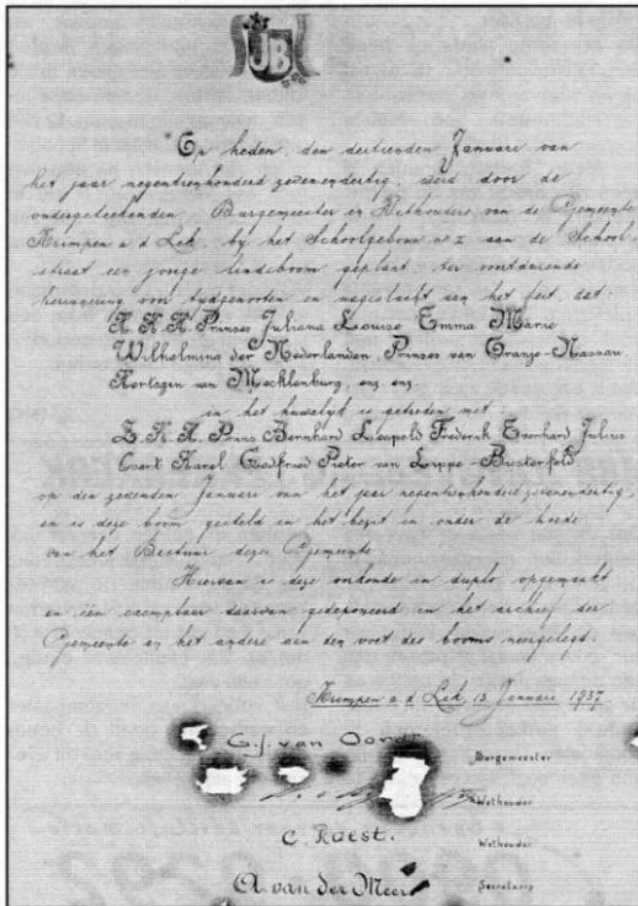 JB
Op heden, den dertienden Januari van
het jaar negentienhonderd zevenendertig, werd door de
ondergeteekenden, Burgemeester en Wethouders van de Gemeente
Krimpen a d Lek, bij het Schoolgebouw no 2 aan de School-
straat een jonge lindeboom geplant, ter voortdurende
herinnering voor tijdgenooten en nageslacht aan het feit, dat:
H. K. H. Prinses Juliana Louise Emma Marie
Wilhelmina der Nederlanden, Prinses van Oranje-Nassau,
Hertogin van Mecklenburg, enz. enz.
in het huwelijk is getreden met:
Z. K. H. Prins Bernhard Leopold Frederik Everhard Julius
Coert Karel Godfried Pieter van Lippe-Biesterfeld
op den zevenden Januari van het jaar negentienhonderdzevenendertig,
en is deze boom gesteld in het bezit en onder de hoede
van het Bestuur dezer Gemeente
Hiervan is deze oorkonde in duplo opgemaakt
en één exemplaar daarvan gedeponeerd in het archief der
Gemeente en het andere aan den voet des booms neergelegd.
Krimpen a d Lek, 13 Januari 1937
G.J. van Oordt
Burgemeester
Wethouder
C. Roest.
Wethouder
A. van der Meer
Secretaris